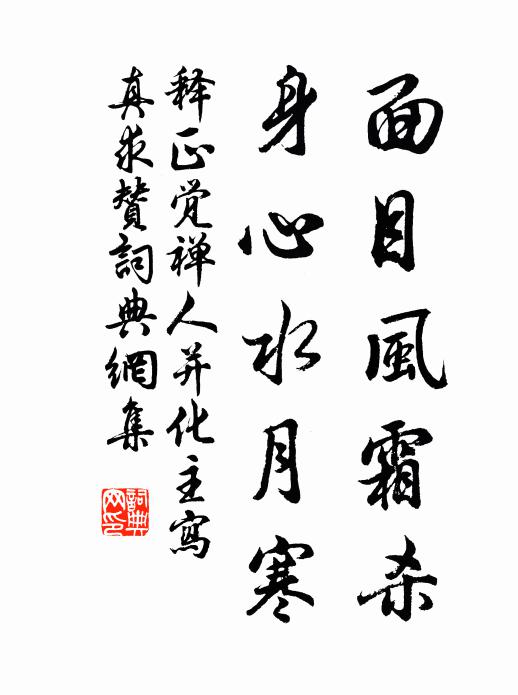 面目風霜杀
身心水月寒
释正觉禅人并化主寫
真求贊詞典網集
詞典网印